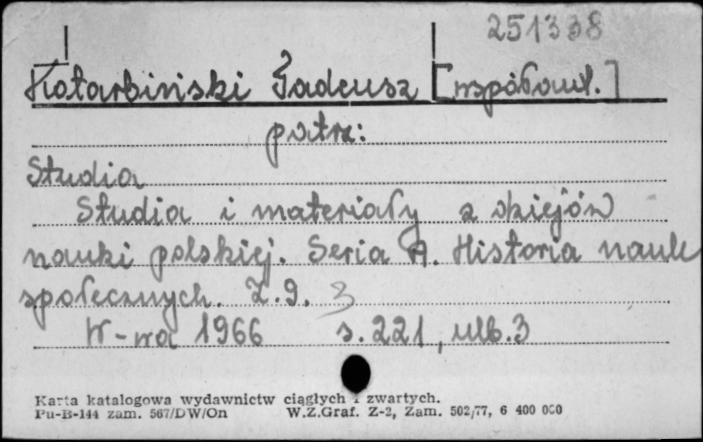 251338
Kotarbiński Tadeusz [współaut.]
patrz:
Studia
Studia i materiały z dziejów
nauki polskiej. Seria A. Historia nauk
społecznych. Z. 9. 3
W-wa 1966 s. 221, nlb. 3
Karta katalogowa wydawnictw ciągłych i zwartych.
Pu-B-144 zam. 567/DW/On W.Z.Graf. Z-2, Zam. 502/77, 6 400 000